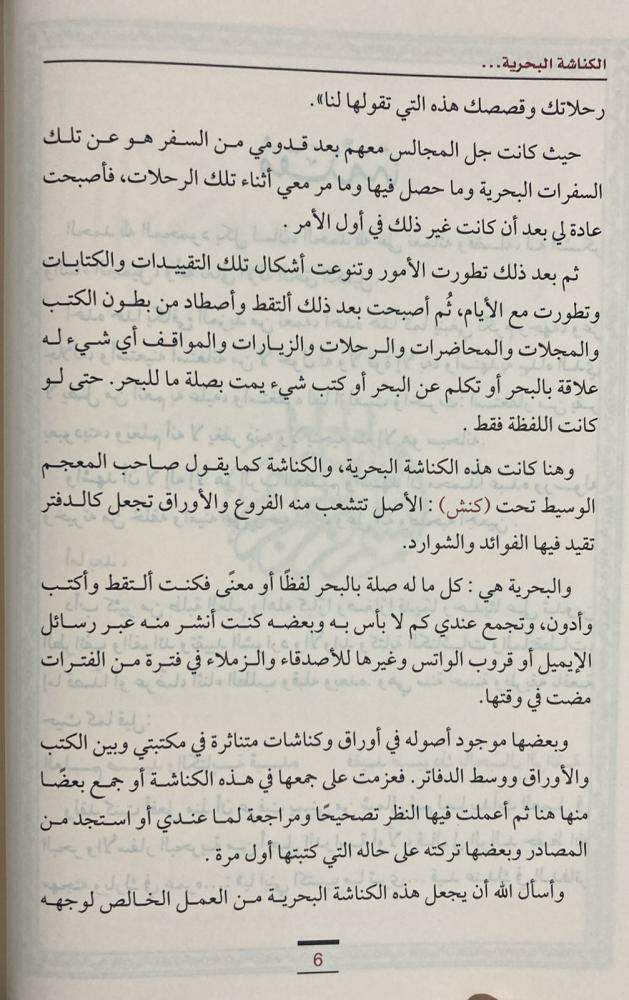 الكناشة البحرية...
رحلاتك وقصصك هذه التي تقولها لنا».
حيث كانت جل المجالس معهم بعد قدومي من السفر هو عن تلك
السفرات البحرية وما حصل فيها وما مر معي أثناء تلك الرحلات، فأصبحت
عادة لي بعد أن كانت غير ذلك في أول الأمر .
ثم بعد ذلك تطورت الأمور وتنوعت أشكال تلك التقييدات والكتابات
وتطورت مع الأيام، ثُم أصبحت بعد ذلك ألتقط وأصطاد من بطون الكتب
والمجلات والمحاضرات والرحلات والزيارات والمواقف أي شيء له
علاقة بالبحر أو تكلم عن البحر أو كتب شيء يمت بصلة ما للبحر. حتى لو
كانت اللفظة فقط .
وهنا كانت هذه الكناشة البحرية، والكناشة كما يقول صاحب المعجم
الوسيط تحت (كنش) : الأصل تتشعب منه الفروع والأوراق تجعل كالدفتر
تقيد فيها الفوائد والشوارد.
والبحرية هي : كل ما له صلة بالبحر لفظًا أو معنًى فكنت ألتقط وأكتب
وأدون، وتجمع عندي كم لا بأس به وبعضه كنت أنشر منه عبر رسائل
الإيميل أو قروب الواتس وغيرها للأصدقاء والزملاء في فترة من الفترات
مضت في وقتها.
وبعضها موجود أصوله في أوراق وكناشات متناثرة في مكتبتي وبين الكتب
والأوراق ووسط الدفاتر. فعزمت على جمعها في هذه الكناشة أو جمع بعضًا
منها هنا ثم أعملت فيها النظر تصحيحًا ومراجعة لما عندي أو استجد من
المصادر وبعضها تركته على حاله التي كتبتها أول مرة .
وأسأل الله أن يجعل هذه الكناشة البحرية من العمل الخالص لوجهه
6